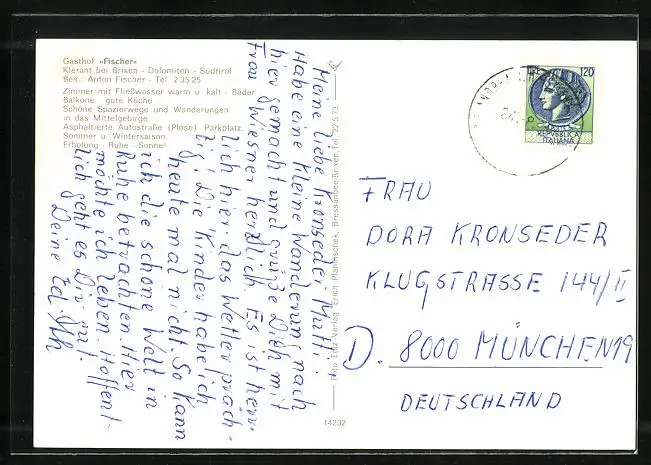 Gasthof »Fischer«
Klerant bei Brixen - Dolomiten - Südtirol
Bes.: Anton Fischer - Tel 2 35 25
Zimmer mit Fließwasser warm u kalt - Bäder
Balkone gute Küche
Schöne Spazierwege und Wanderungen
in das Mittelgebirge
Asphaltierte Autostraße (Plose) Parkplatz
Sommer u Wintersaison
Erholung - Ruhe - Sonne!
Meine liebe Kronseder Mutti!
Habe eine kleine Wanderung nach
hier gemacht und grüße Dich mit
Frau Wisner herzlich. Es ist herr-
lich hier das Wetter präch-
tig! Die Kinder habe ich
heute mal nicht. So kann
ich die schöne Welt in
Ruhe betrachten. Hier
möchte ich leben. Hoffent-
lich geht es Dir gut!
Deine
Foto Edit Verlag Erich Planitschek, Bressanone-Brixen Tel 22 5 73
14232
120
REPVBBLICA
ITALIANA
FRAU
DORA KRONSEDER
KLUGSTRASSE 144/II
D. 8000 MÜNCHEN 19
DEUTSCHLAND